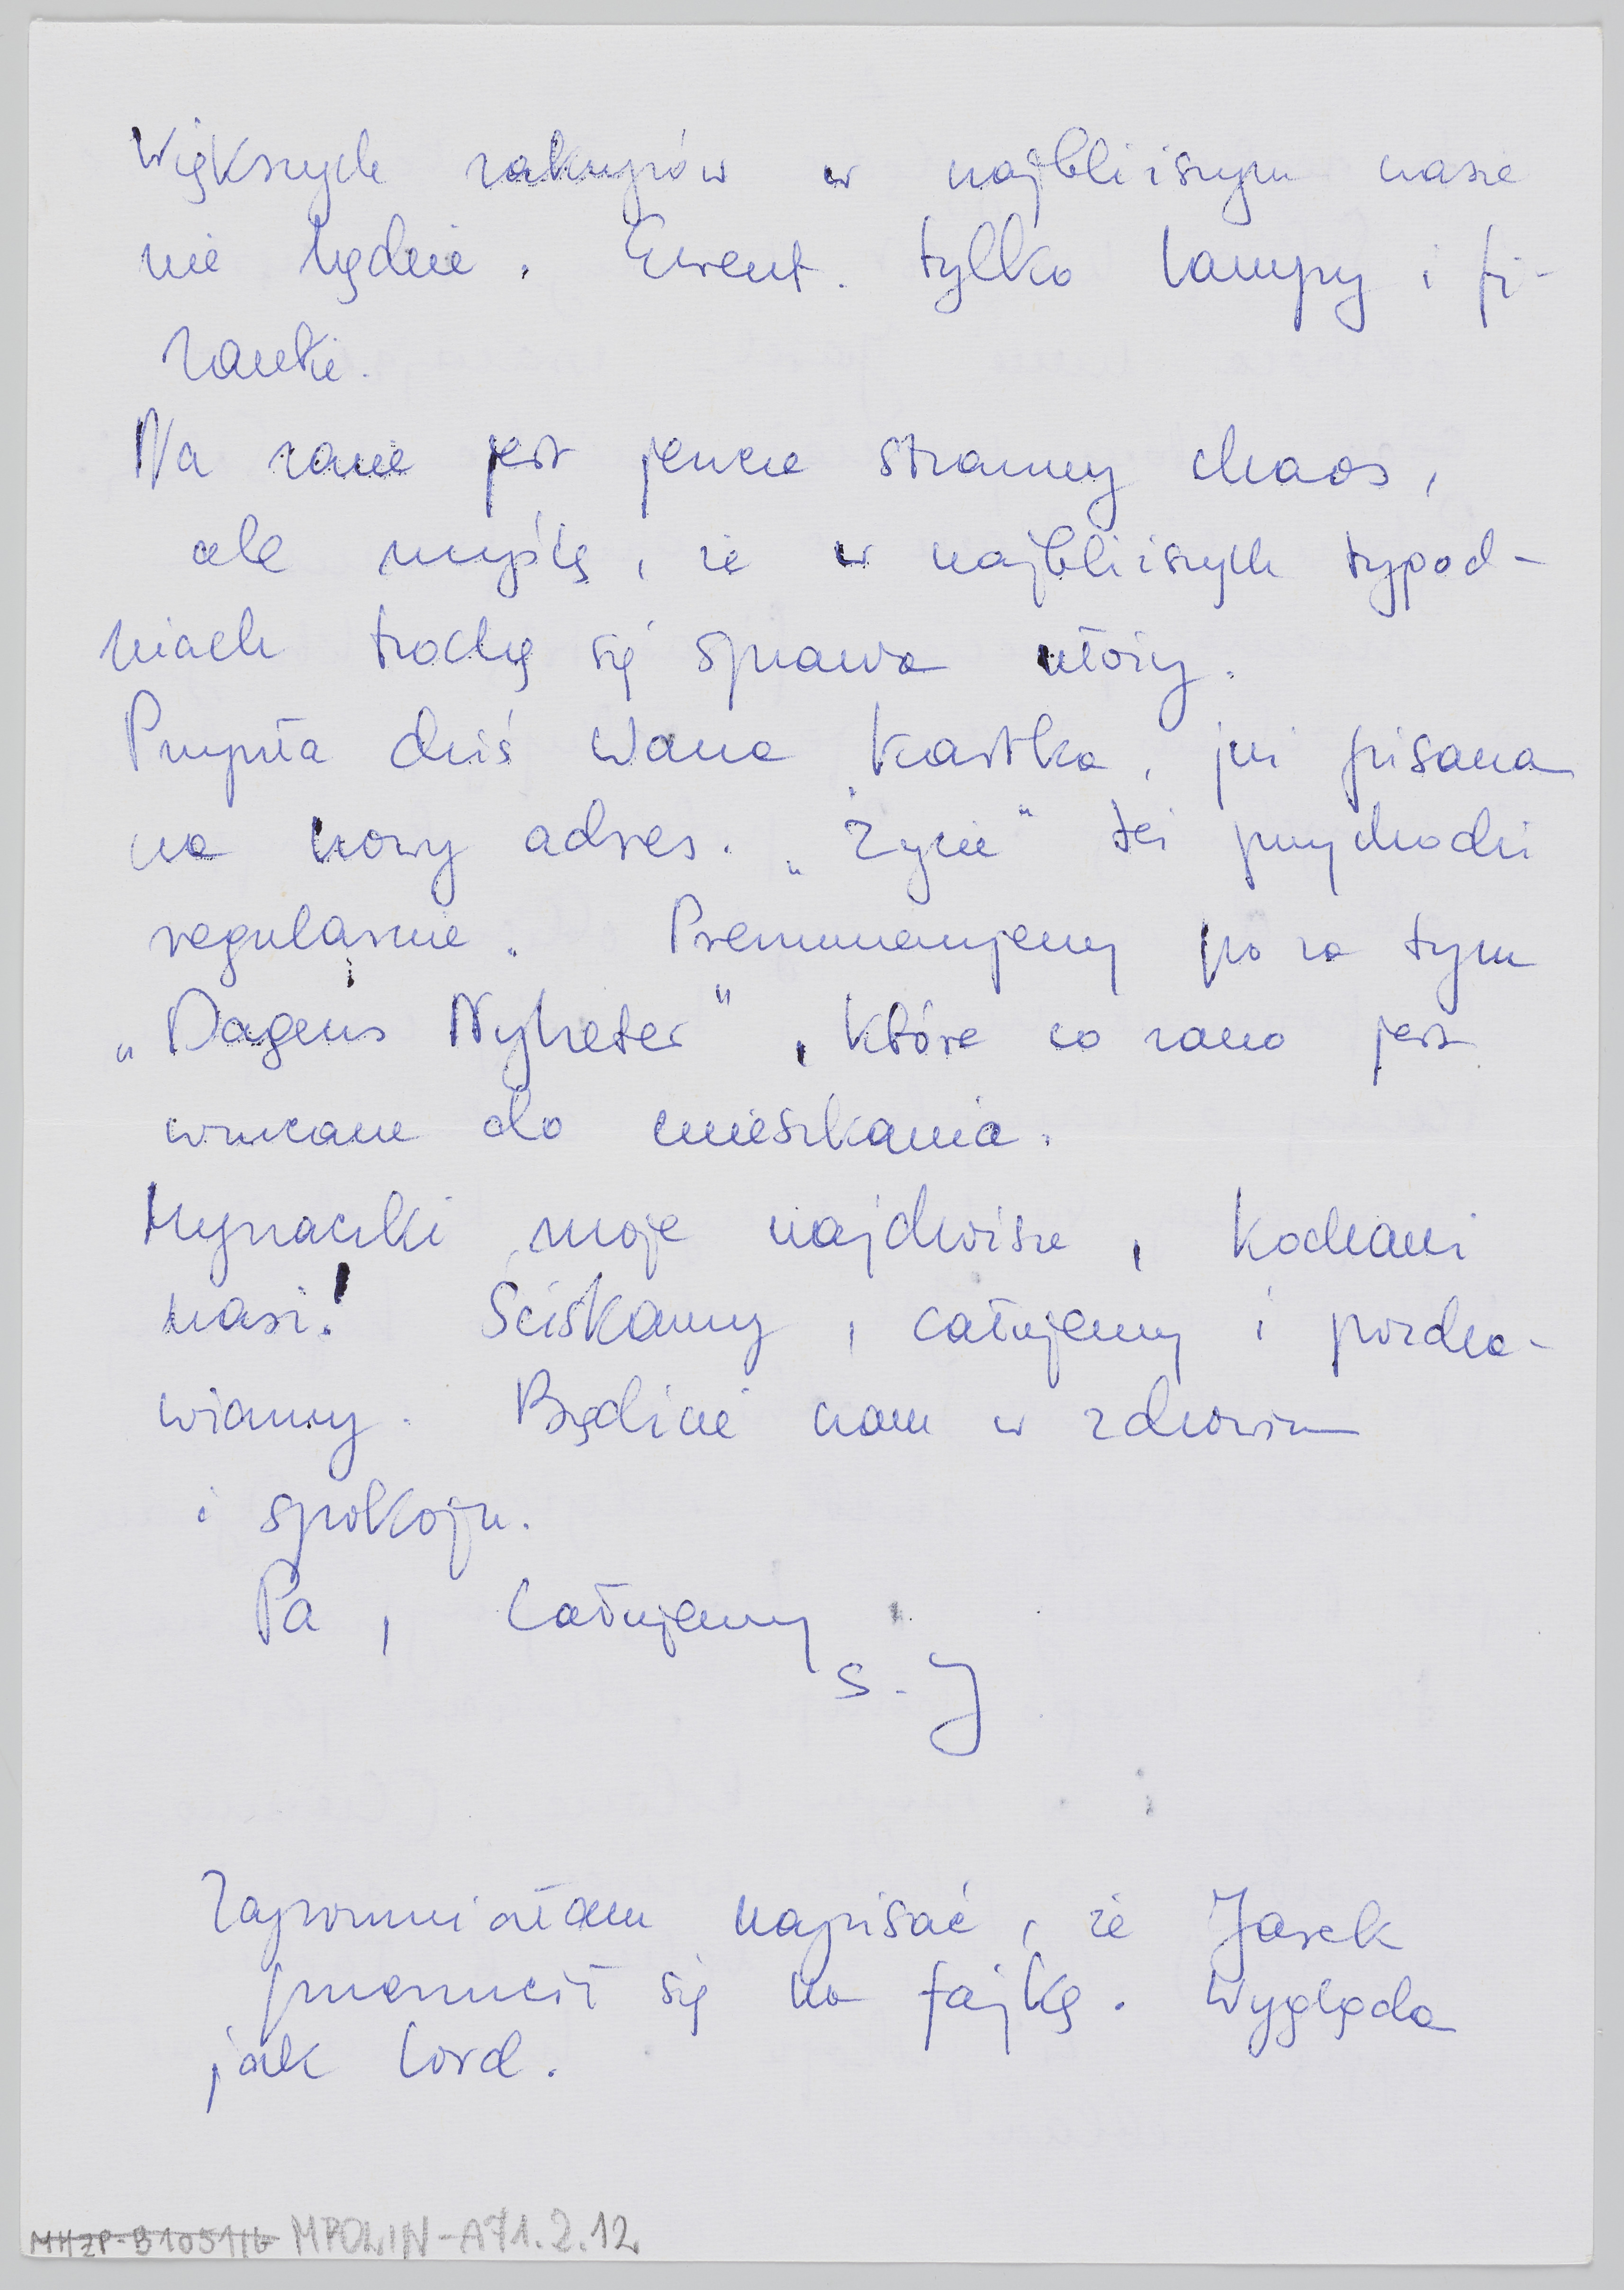 Większych zakupów w najbliższym czasie
nie będzie. Ewent. tylko lampy i fi-
ranki.
Na razie jest jeszcze straszny chaos,
ale myślę, że w najbliższych tygod-
niach trochę się sprawa ułoży.
Przyszła dziś Wasza kartka, już pisana
na nowy adres. „Życie" też przychodzi
regularnie. Prenumerujemy po za tym
„Dagens Nyheter", które co rano jest
wrzucane do mieszkania.
moje najdroższe, kochani
nasi! Ściskamy, całujemy i pozdra-
wiamy. Bądźcie nam w zdrowiu
i spokoju.
Pa, Całujemy
S. J
Zapomniałam napisać, że Jasek
przerzucił się na fajkę. Wygląda
jak lord.
MHŻP-B1051/6 MPOLIN-A71.2.12